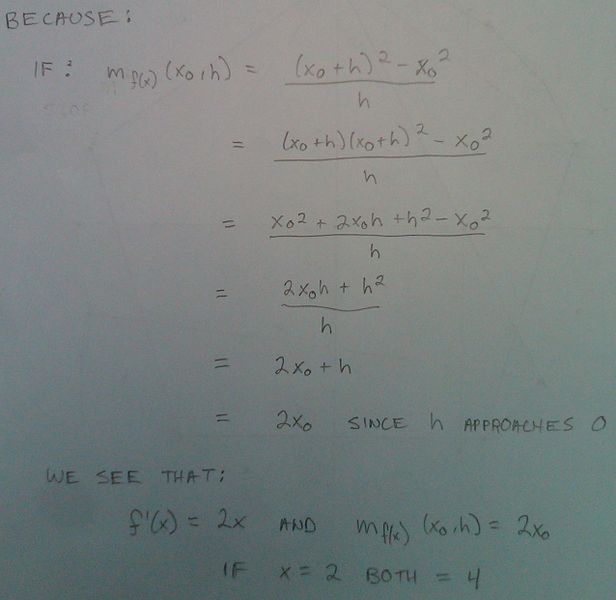 BECAUSE:
IF: m_f(x) (x₀,h) = ((x₀+h)² - x₀²) / h
= ((x₀+h)(x₀+h)² - x₀²) / h
= (x₀² + 2x₀h + h² - x₀²) / h
= (2x₀h + h²) / h
= 2x₀ + h
= 2x₀ SINCE h APPROACHES 0
WE SEE THAT:
f'(x) = 2x AND m_f(x) (x₀,h) = 2x₀
IF x = 2 BOTH = 4